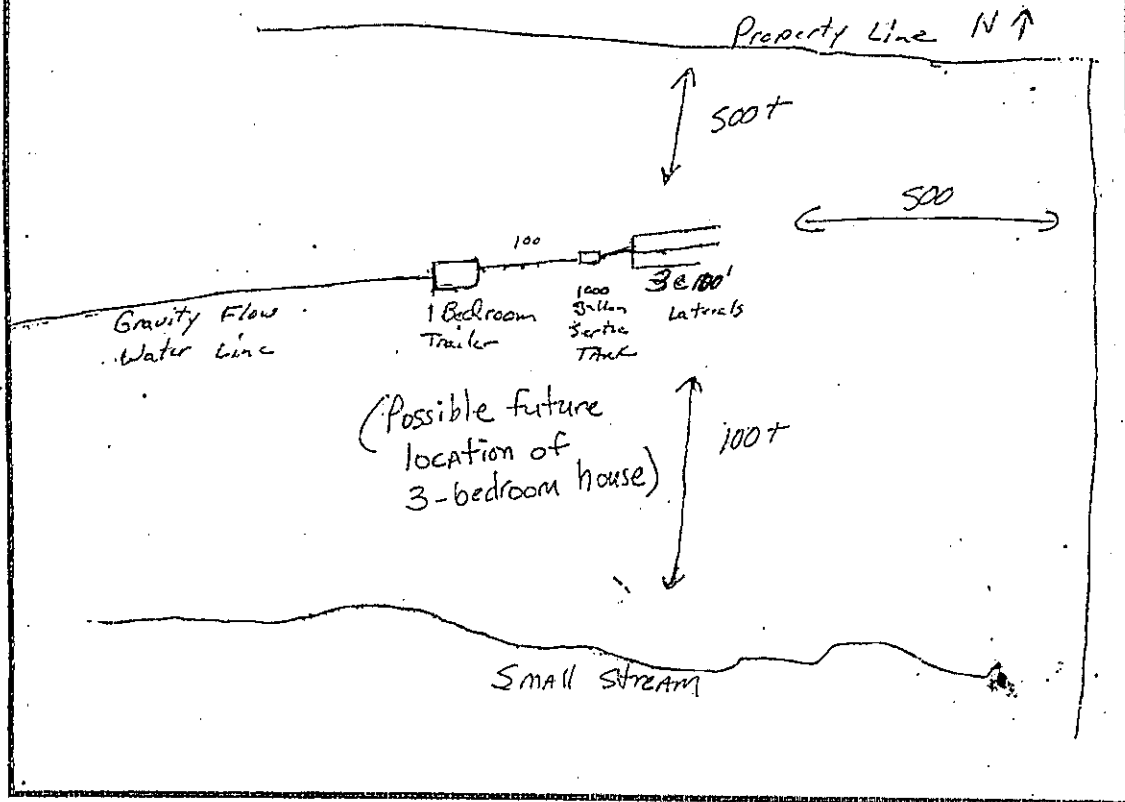 Property Line N ↑
500+
500
100
Gravity Flow
Water Line
1 Bedroom
Trailer
1000
Gallon
Septic
Tank
3 @ 100'
Laterals
(Possible future
location of
3-bedroom house)
100+
Small Stream